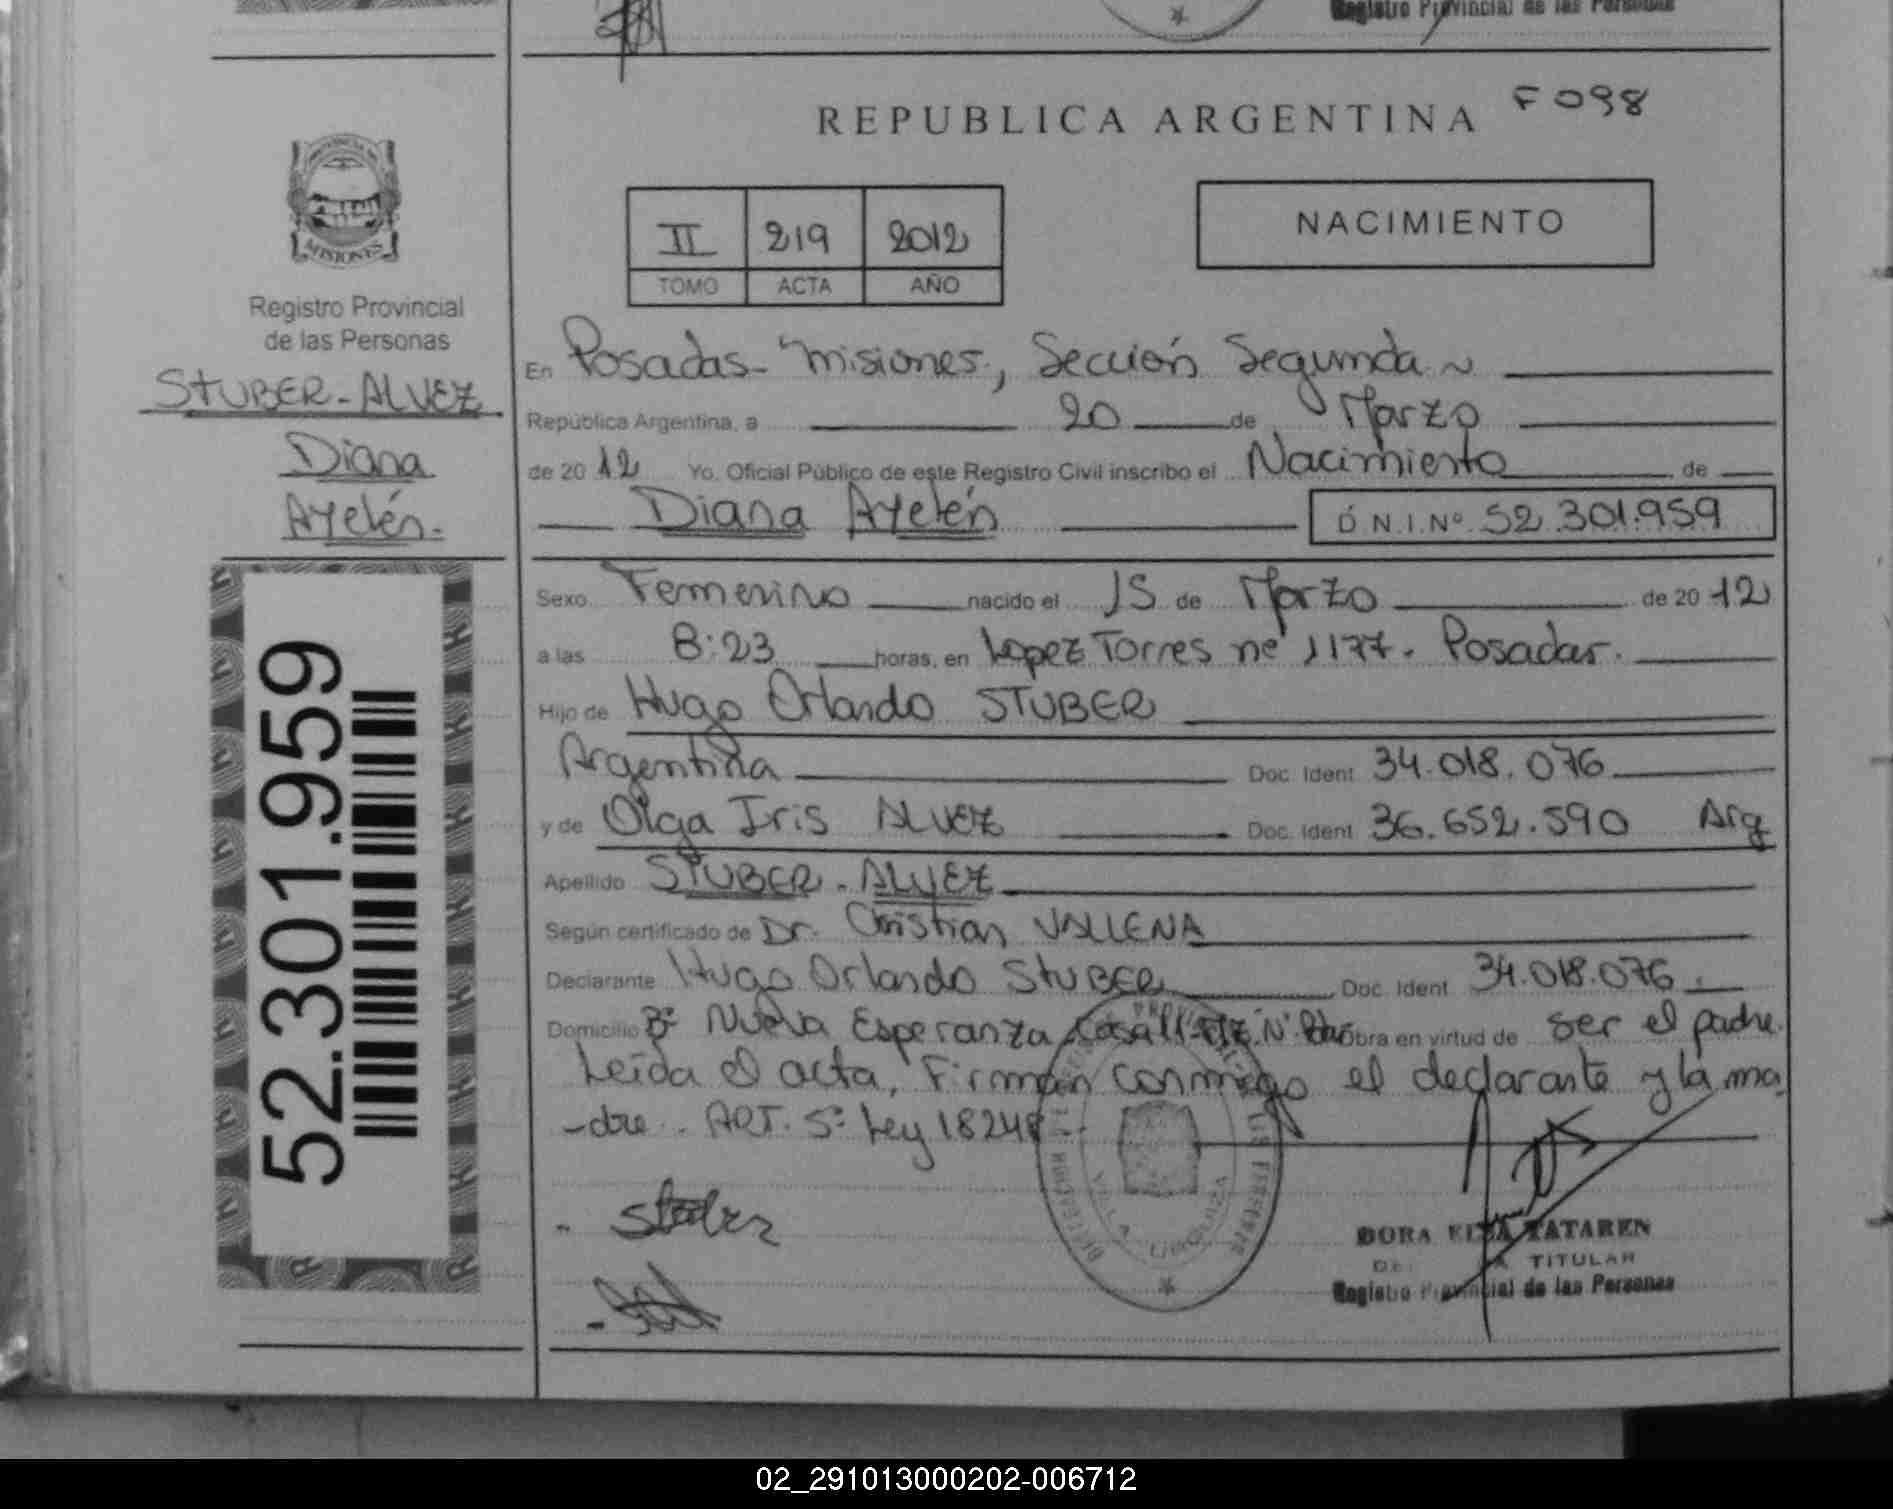 Registro Provincial de las Personas
REPUBLICA ARGENTINA F098
MISIONES
Registro Provincial
de las Personas
STUBER-ALVEZ
Diana
Ayelén.
52.301.959
II 219 2012
TOMO ACTA AÑO
NACIMIENTO
En Posadas- Misiones, Sección Segunda
República Argentina, a 20 de Marzo
de 2012 Yo, Oficial Público de este Registro Civil inscribo el Nacimiento de
Diana Ayelén D.N.I.Nº 52.301.959
Sexo Femenino nacido el 15 de Marzo de 2012
a las 8:23 horas, en Lopez Torres nº 1177. Posadas.
Hijo de Hugo Orlando STUBER
Argentina Doc. Ident 34.018.076
y de Olga Iris ALVEZ Doc. Ident 36.652.590 Arg
Apellido STUBER - ALVEZ
Según certificado de Dr. Christian VALLENA
Declarante Hugo Orlando STUBER Doc. Ident 34.018.076.
Domicilio Bº Nueva Esperanza Casa Obra en virtud de ser el padre.
Leída el acta, Firman conmigo el declarante y la ma
-dre. ART. 5º Ley 18248
Stuber
DORA ELSA TATAREN
TITULAR
Registro Provincial de las Personas
02_291013000202-006712